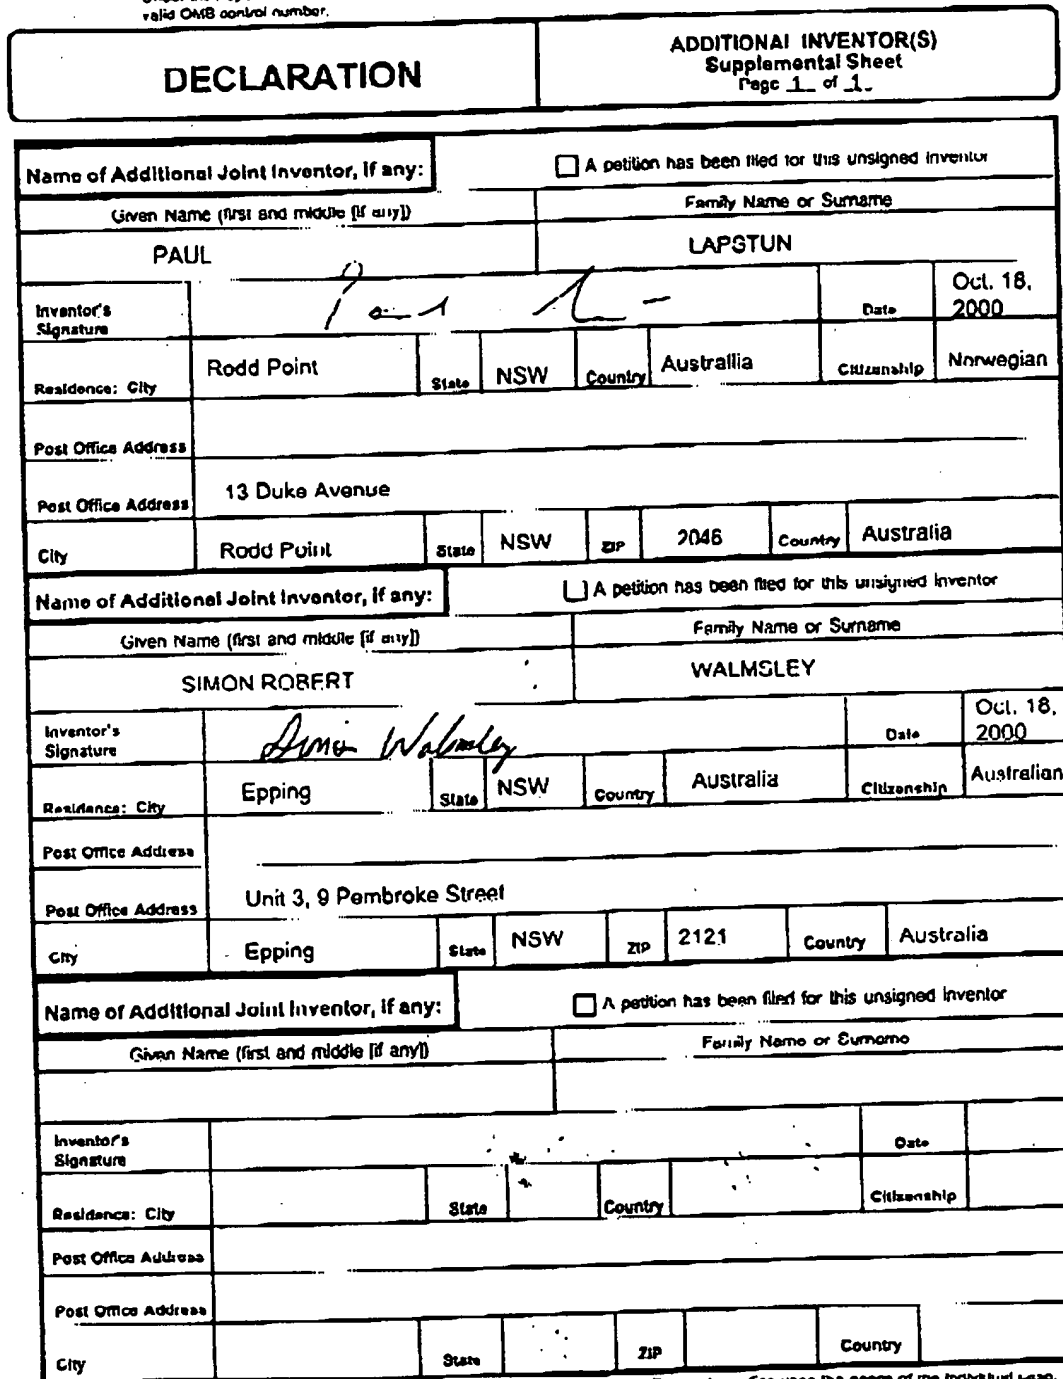 valid OMB control number.
DECLARATION
ADDITIONAL INVENTOR(S)
Supplemental Sheet
Page 1 of 1
Name of Additional Joint Inventor, if any:
A petition has been filed for this unsigned inventor
Given Name (first and middle [if any])
Family Name or Surname
PAUL
LAPSTUN
Inventor's
Signature
Date
Oct. 18,
2000
Residence: City
Rodd Point
State
NSW
Country
Australlia
Citizenship
Norwegian
Post Office Address
Post Office Address
13 Duke Avenue
City
Rodd Point
State
NSW
ZIP
2046
Country
Australia
Name of Additional Joint Inventor, if any:
A petition has been filed for this unsigned inventor
Given Name (first and middle [if any])
Family Name or Surname
SIMON ROBERT
WALMSLEY
Inventor's
Signature
Simon Walmsley
Date
Oct. 18,
2000
Residence: City
Epping
State
NSW
Country
Australia
Citizenship
Australian
Post Office Address
Post Office Address
Unit 3, 9 Pembroke Street
City
Epping
State
NSW
ZIP
2121
Country
Australia
Name of Additional Joint Inventor, if any:
A petition has been filed for this unsigned inventor
Given Name (first and middle [if any])
Family Name or Surname
Inventor's
Signature
Date
Residence: City
State
Country
Citizenship
Post Office Address
Post Office Address
City
State
ZIP
Country
upon the needs of the individual case.